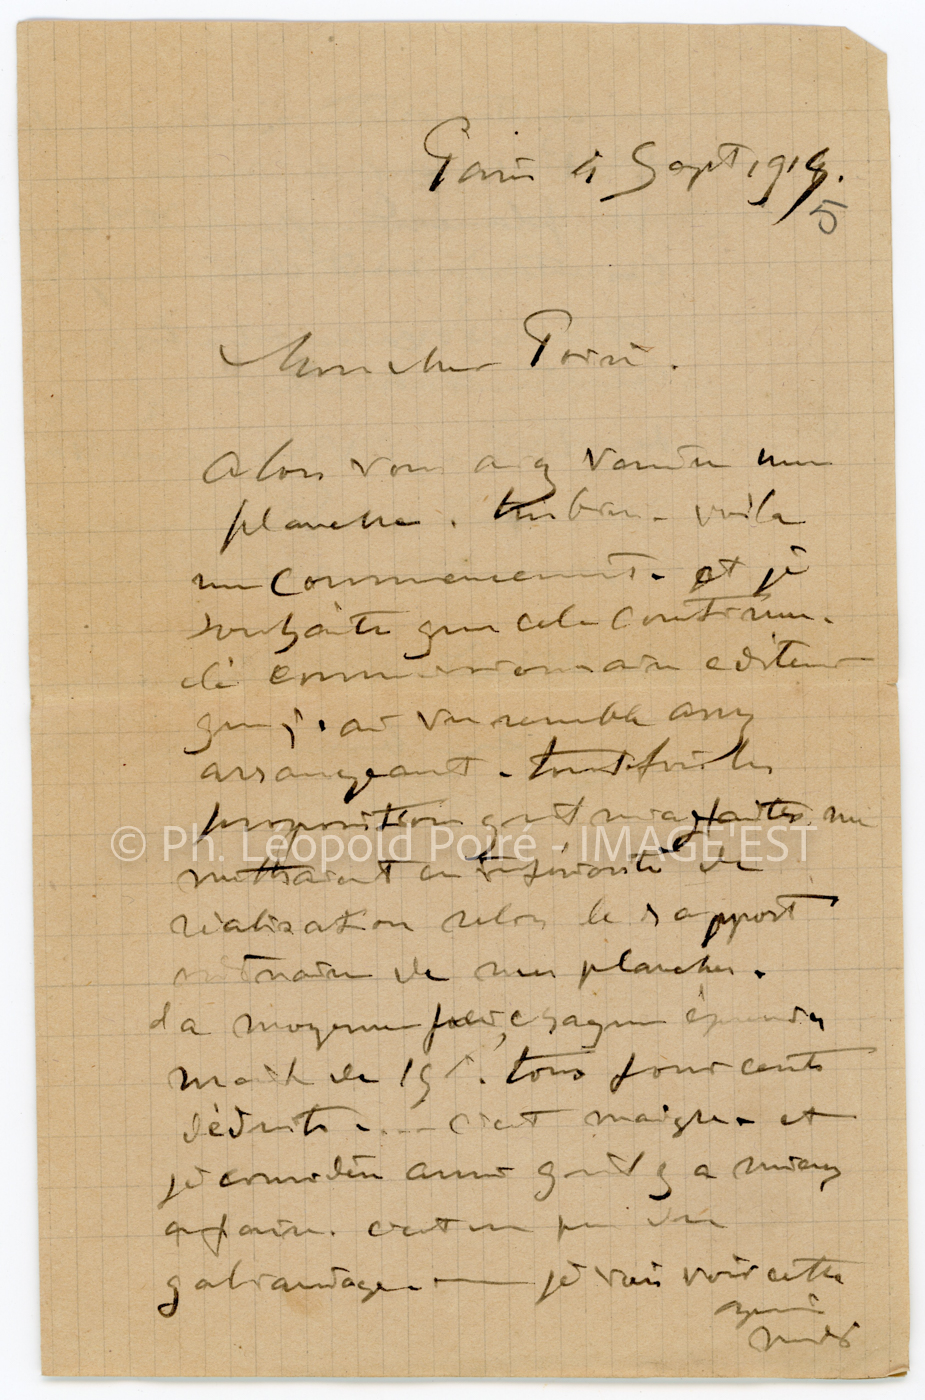 Paris 4 Sept 1914.
5
Mon cher Poiré.
Alors vous avez vendu une
planche. très bien - voilà
un commencement. et je
souhaite que cela continue.
le commissionnaire editeur
que j'ai vu semble assez
arrangeant. toutefois les
propositions qu'il m'a faites me
mettraient en infériorité de
réalisation selon le rapport
de mes planches.
La moyenne pour chaque épreuve
de 15f. tous pour cents
déduits. ... c'est maigre. et
je considère aussi qu'il y a mieux
a faire. c'est un peu du
galvaudage. — je vais voir cette
après
midi
© Ph. Léopold Poiré - IMAGE'EST